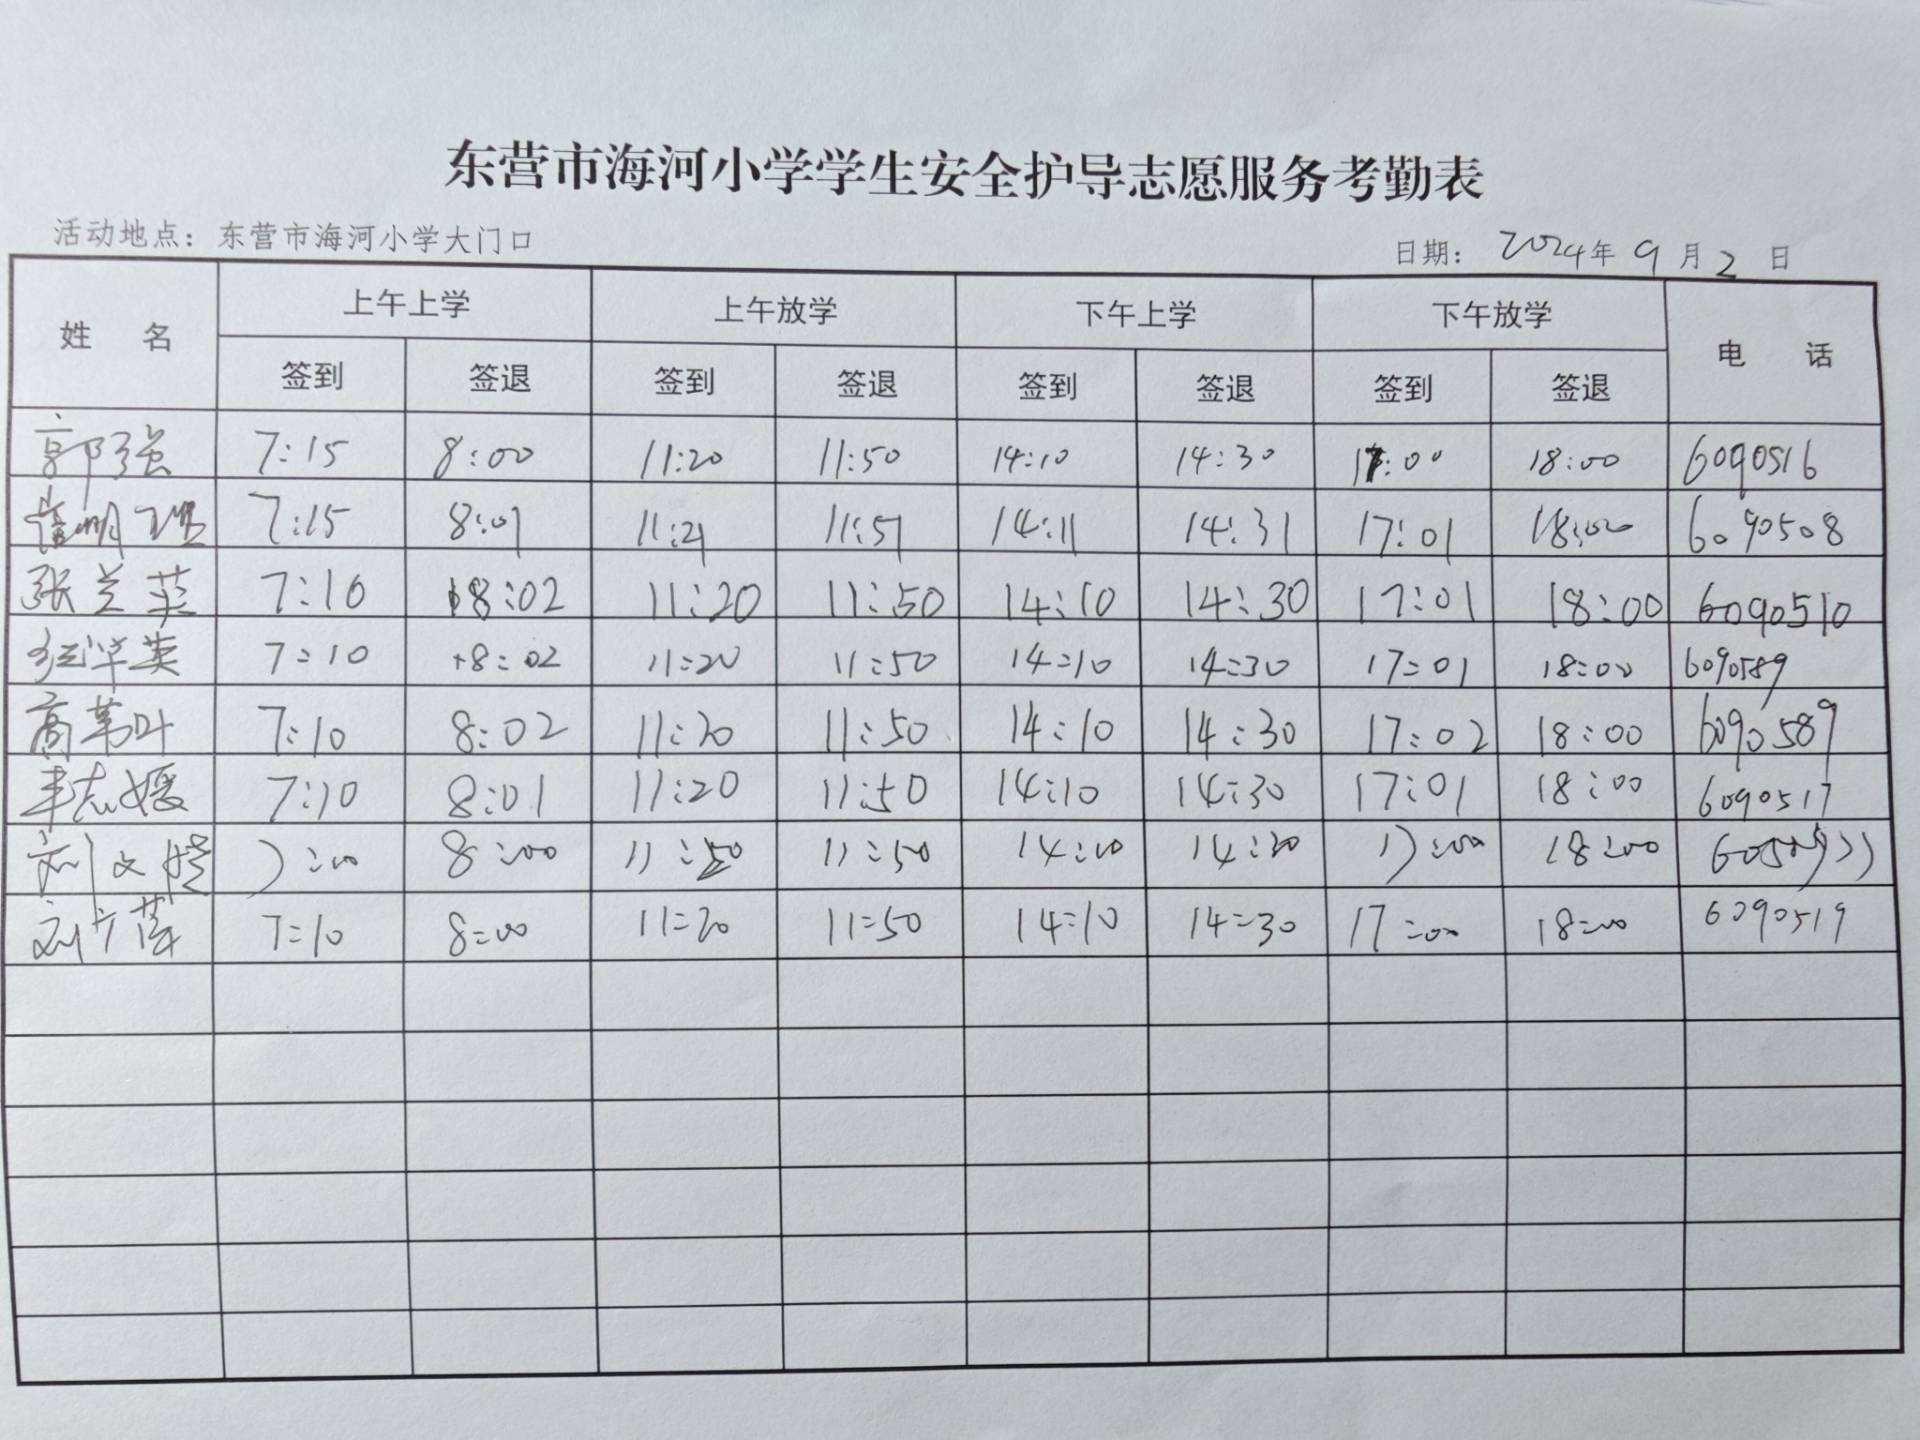 东营市海河小学学生安全护导志愿服务考勤表
活动地点：东营市海河小学大门口 日期： 2024年 9 月 2 日
姓 名 上午上学 上午放学 下午上学 下午放学 电 话
签到 签退 签到 签退 签到 签退 签到 签退
郭强 7:15 8:00 11:20 11:50 14:10 14:30 17:00 18:00 6090516
7:15 8:01 11:21 11:51 14:11 14:31 17:01 18:00 6090508
张兰英 7:10 8:02 11:20 11:50 14:10 14:30 17:01 18:00 6090510
华英 7:10 8:02 11:20 11:50 14:10 14:30 17:01 18:00 6090589
高苇叶 7:10 8:02 11:20 11:50 14:10 14:30 17:02 18:00 6090589
志媛 7:10 8:01 11:20 11:50 14:10 14:30 17:01 18:00 6090517
刘文 8:00 11:50 14:10 14:30 17:00 18:00
刘 7:10 8:00 11:20 11:50 14:10 14:30 17:00 18:00 6090519